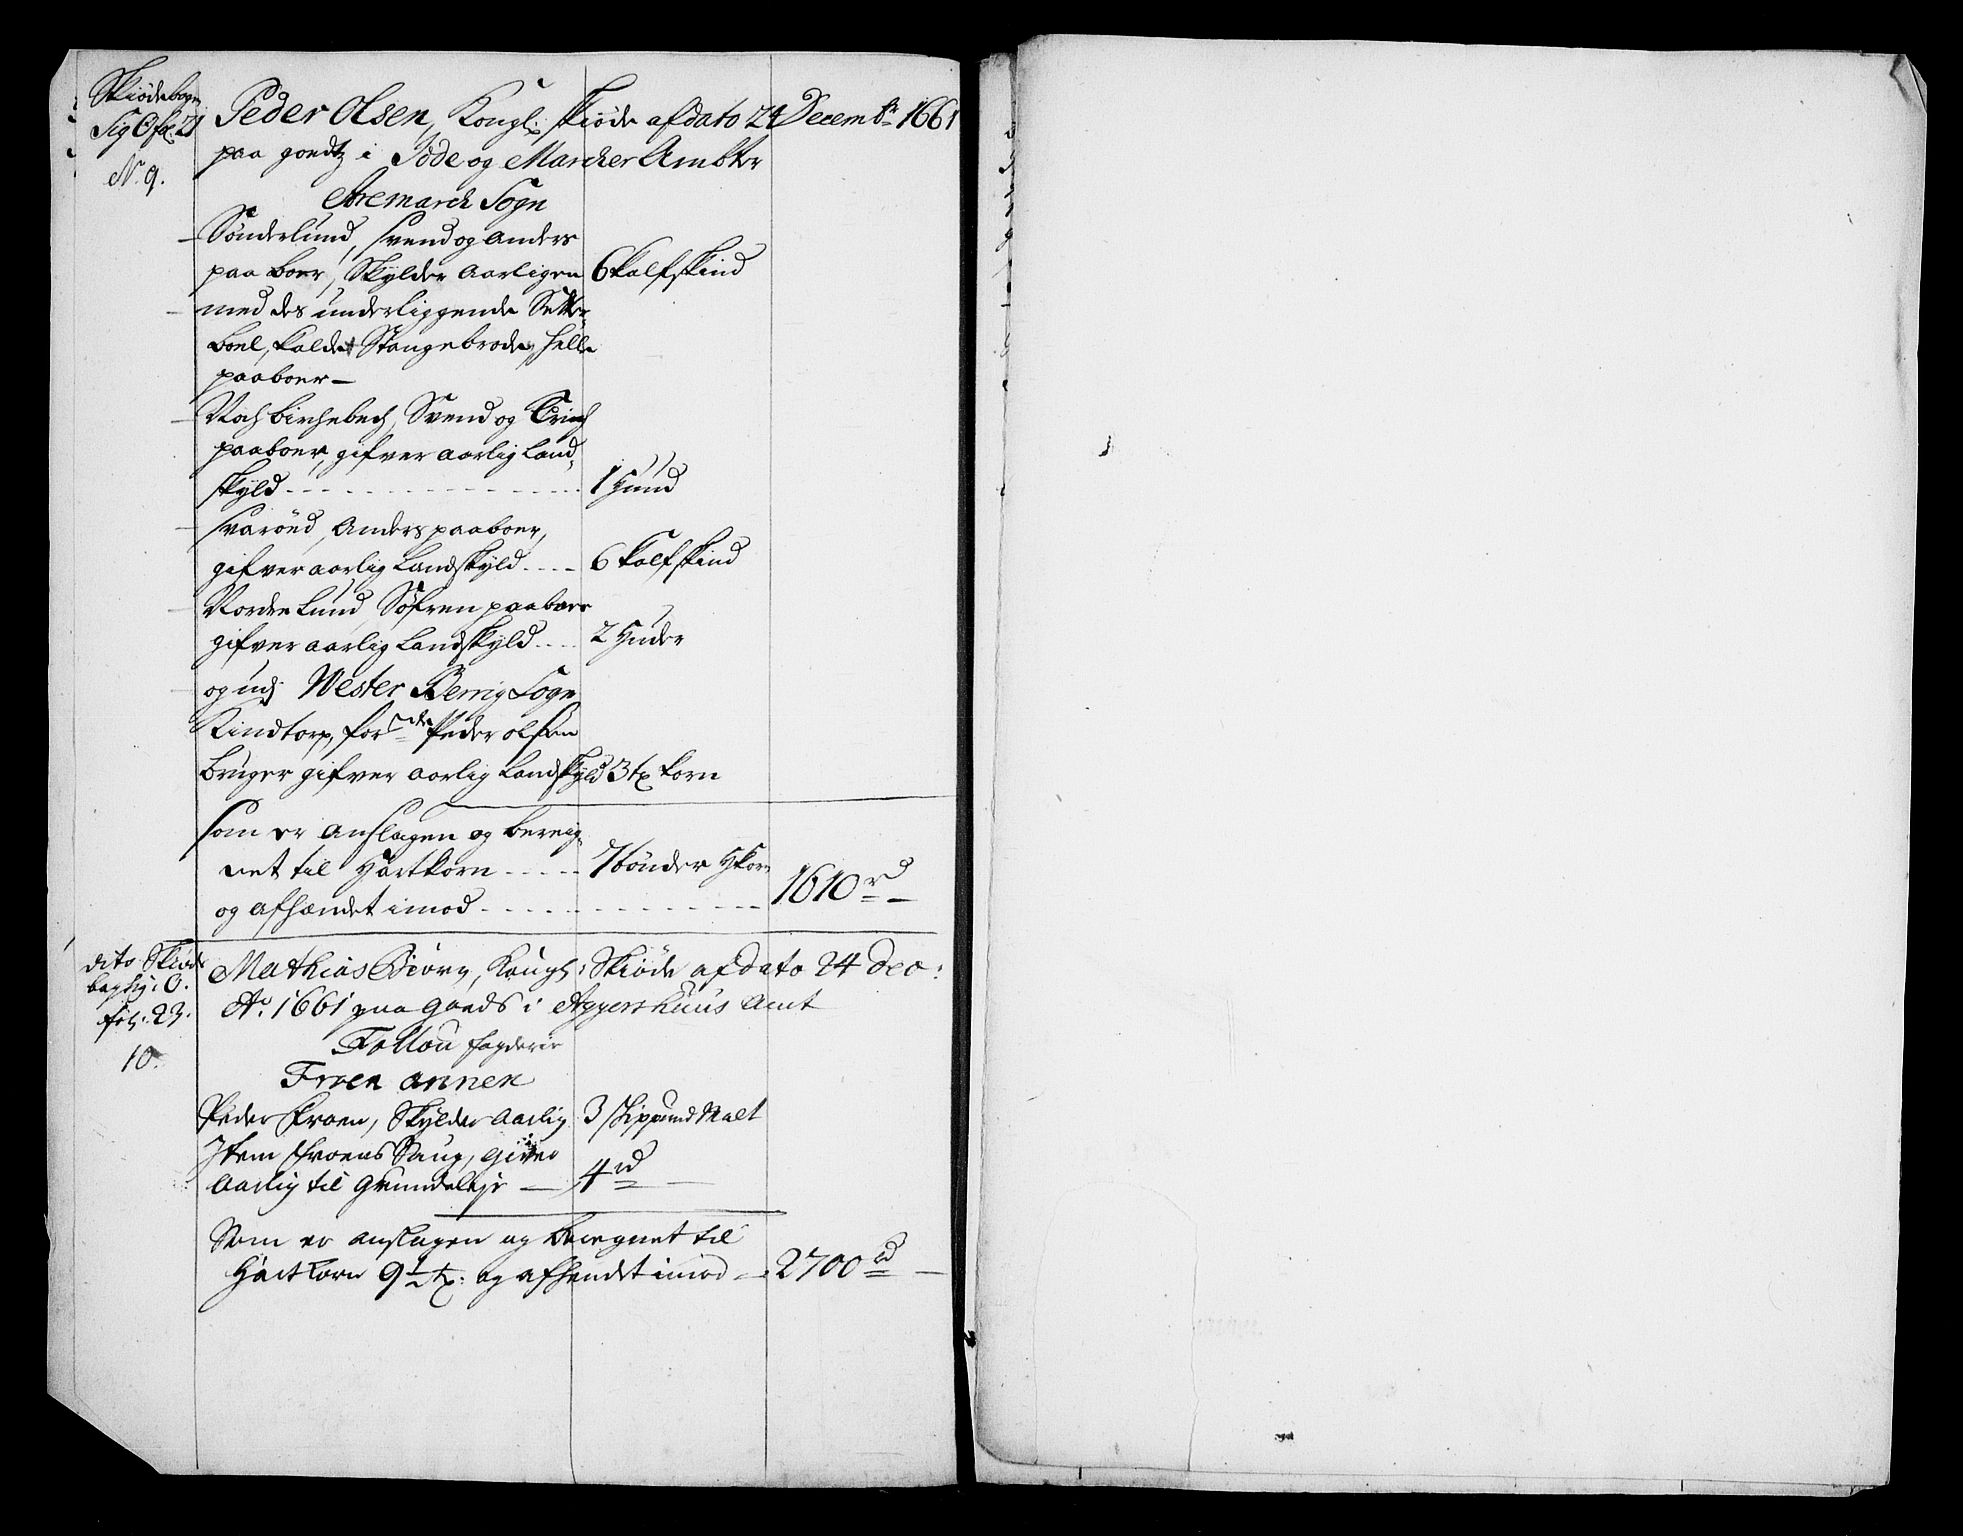 Skiødebogen
Sig O fol. 21
N. 9.
Peder Olsen, Kongl: skiøde af dato 24 Decembr 1661
paa goedtz i Jdde og Marcher Ambter
Aremarch Sogn
Sønderlund, Svend og Anders
paa boer, Skylder Aarligen 6 Kalfskind
med des underliggende Sætter-
boel, kaldet Stangebrode, Helle
paaboer –
Noch Birchebech, Svend og Erich
paaboer, gifver aarlig Land-
skyld - - - 1 Huud
Svarød, Anders paaboer,
gifver aarlig Landskyld - - - 6 Kalfskind
Norder Lund, Søfren paaboer
gifver aarlig Landskyld - - - 2 Huder
og udj Wester Berrig Sogn
Kindtorp, forne Peder Olsen
bruger gifver aarlig Landskyld 3 tr Korn
som er Anslagen og bereig-
net til Hartkorn - - - 7 tønder HKorn
og afhændet imod - - - 1610 rd
dito Skiøde
bog sig: O.
fol: 23.
10.
Mathias Biørn, Kongl: Skiøde af dato 24 Dec:
Ao. 1661 paa Goeds i Aggershuus Amt
Follou fogderie
Froen annex
Peder Froen, Skylder Aarlig 3 Skippund Malt
Jtem Froens Saug, giver
Aarlig til Grundeleje — 4 rd
Som er anslagen og beregnet til
Hartkorn 9 1/2 tr: og afhendet imod - 2700 rd